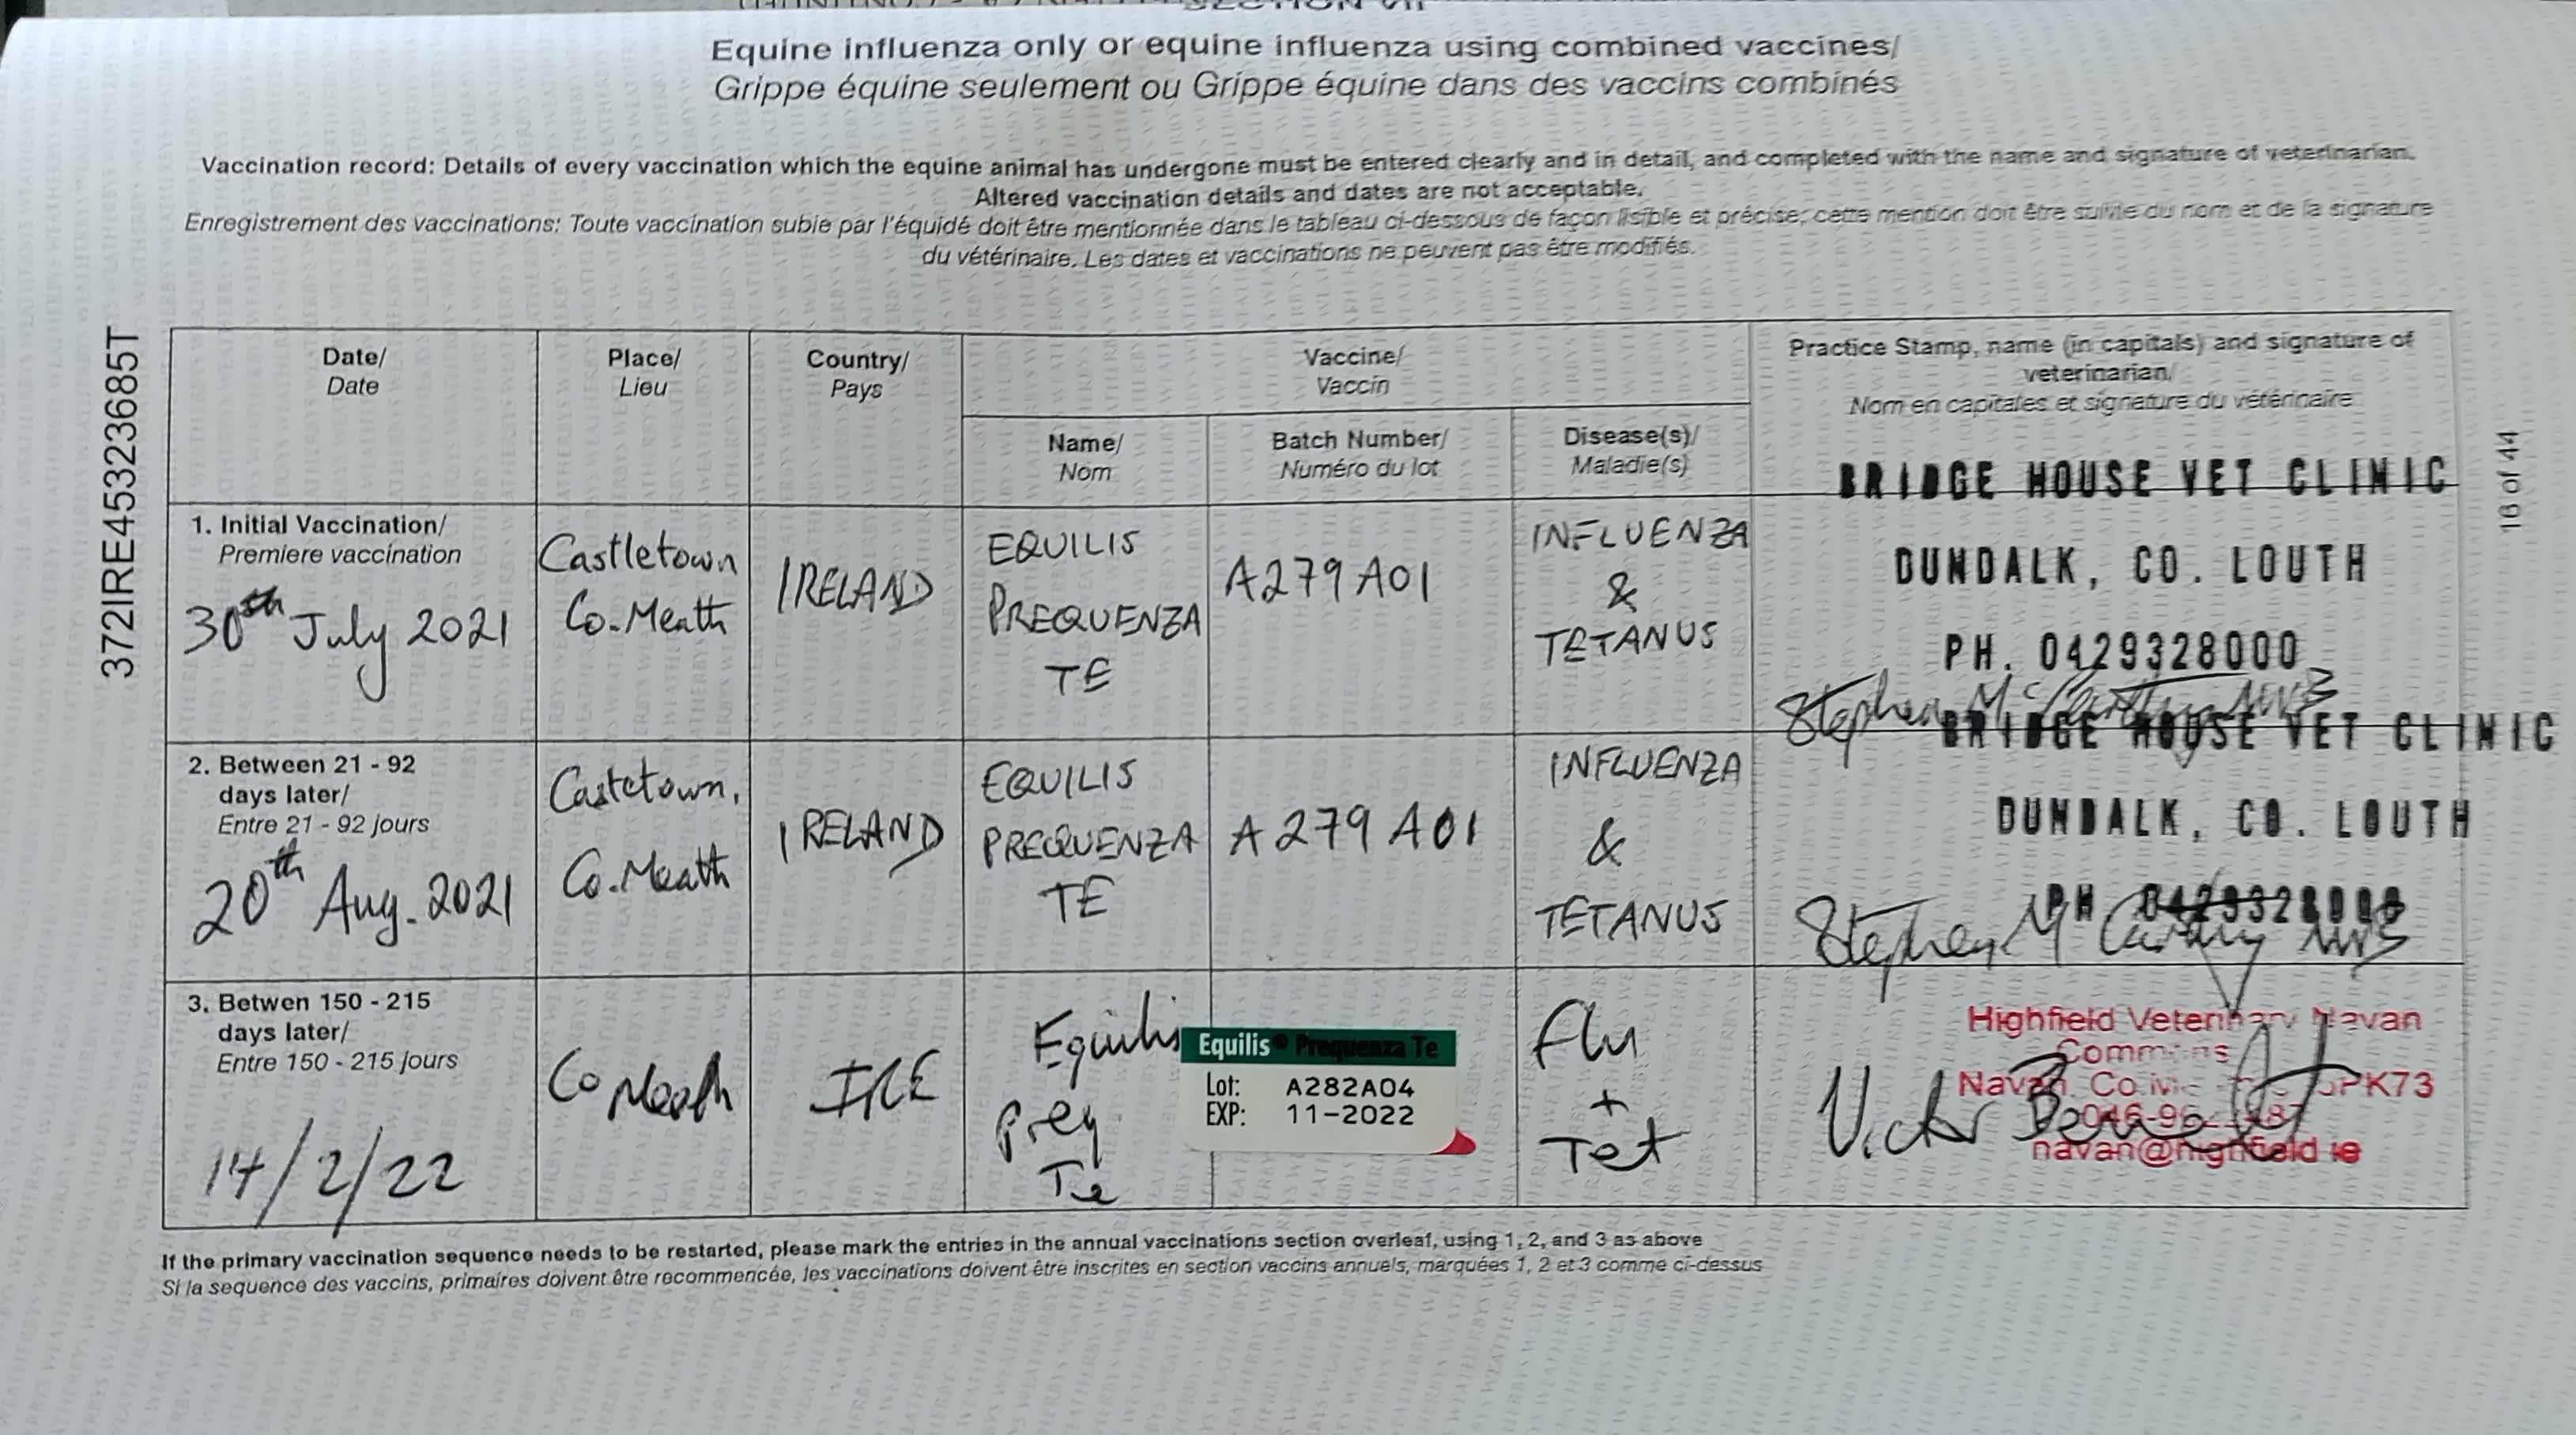 Equine influenza only or equine influenza using combined vaccines/
Grippe équine seulement ou Grippe équine dans des vaccins combinés
Vaccination record: Details of every vaccination which the equine animal has undergone must be entered clearly and in detail, and completed with the name and signature of veterinarian.
Altered vaccination details and dates are not acceptable.
Enregistrement des vaccinations: Toute vaccination subie par l'équidé doit être mentionnée dans le tableau ci-dessous de façon lisible et précise; cette mention doit être suivie du nom et de la signature
du vétérinaire. Les dates et vaccinations ne peuvent pas être modifiés.
372IRE453236685T
16 of 44
Date/
Date
Place/
Lieu
Country/
Pays
Vaccine/
Vaccin
Name/
Nom
Batch Number/
Numéro du lot
Disease(s)/
Maladie(s)
Practice Stamp, name (in capitals) and signature of
veterinarian/
Nom en capitales et signature du vétérinaire
1. Initial Vaccination/
Premiere vaccination
30th July 2021
Castletown
Co. Meath
IRELAND
EQUILIS
PREQUENZA
TE
A279A01
INFLUENZA
&
TETANUS
BRIDGE HOUSE VET CLINIC
DUNDALK, CO. LOUTH
PH. 0429328000
Stephen McCarthy MVB
2. Between 21 - 92
days later/
Entre 21 - 92 jours
20th Aug. 2021
Castetown,
Co. Meath
IRELAND
EQUILIS
PREQUENZA
TE
A279A01
INFLUENZA
&
TETANUS
BRIDGE HOUSE VET CLINIC
DUNDALK, CO. LOUTH
PH 0429328000
Stephen McCarthy MVB
3. Betwen 150 - 215
days later/
Entre 150 - 215 jours
14/2/22
Co Meath
IRE
Equilis
Preq
Te
Equilis® Prequenza Te
Lot: A282A04
EXP: 11-2022
Flu
+
Tet
Highfield Veterinary Navan
Commons
Navan Co
046-9
navan@highfield.ie
Victor
If the primary vaccination sequence needs to be restarted, please mark the entries in the annual vaccinations section overleaf, using 1, 2, and 3 as above
Si la sequence des vaccins, primaires doivent être recommencée, les vaccinations doivent être inscrites en section vaccins annuels, marquées 1, 2 et 3 comme ci-dessus